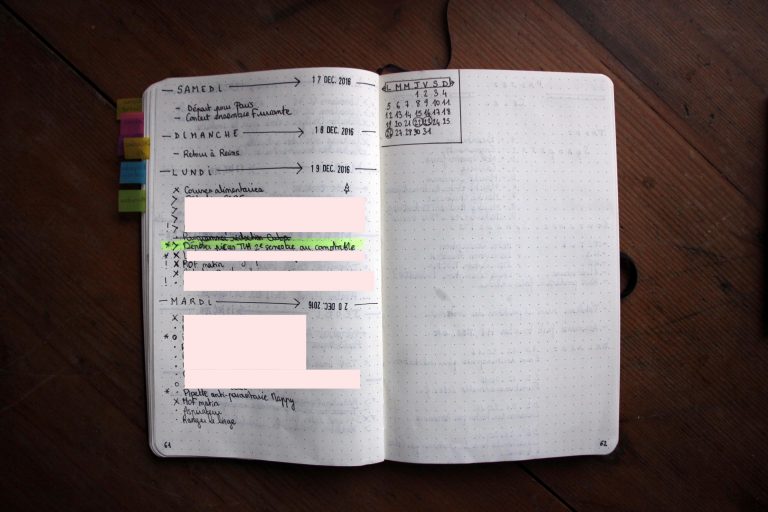 SAMEDI 17 DEC. 2016
- Départ pour Paris
- Contact ensemble
DIMANCHE 18 DEC. 2016
- Retour à Reims
LUNDI 19 DEC. 2016
x Courses alimentaires
>
>
>
!
* > pièces TVA 2e semestre au comptable
* x
! x MDF matin
x
! ·
MARDI 20 DEC. 2016
x
·
* o
·
·
·
·
o
* · Pipette anti-parasitaire Nappy
x MDF matin
· Aspirateur
· Ranger le linge
61
L M M J V S D
1 2 3 4
5 6 7 8 9 10 11
12 13 14 15 16 17 18
19 20 21 22 23 24 25
26 27 28 29 30 31
62